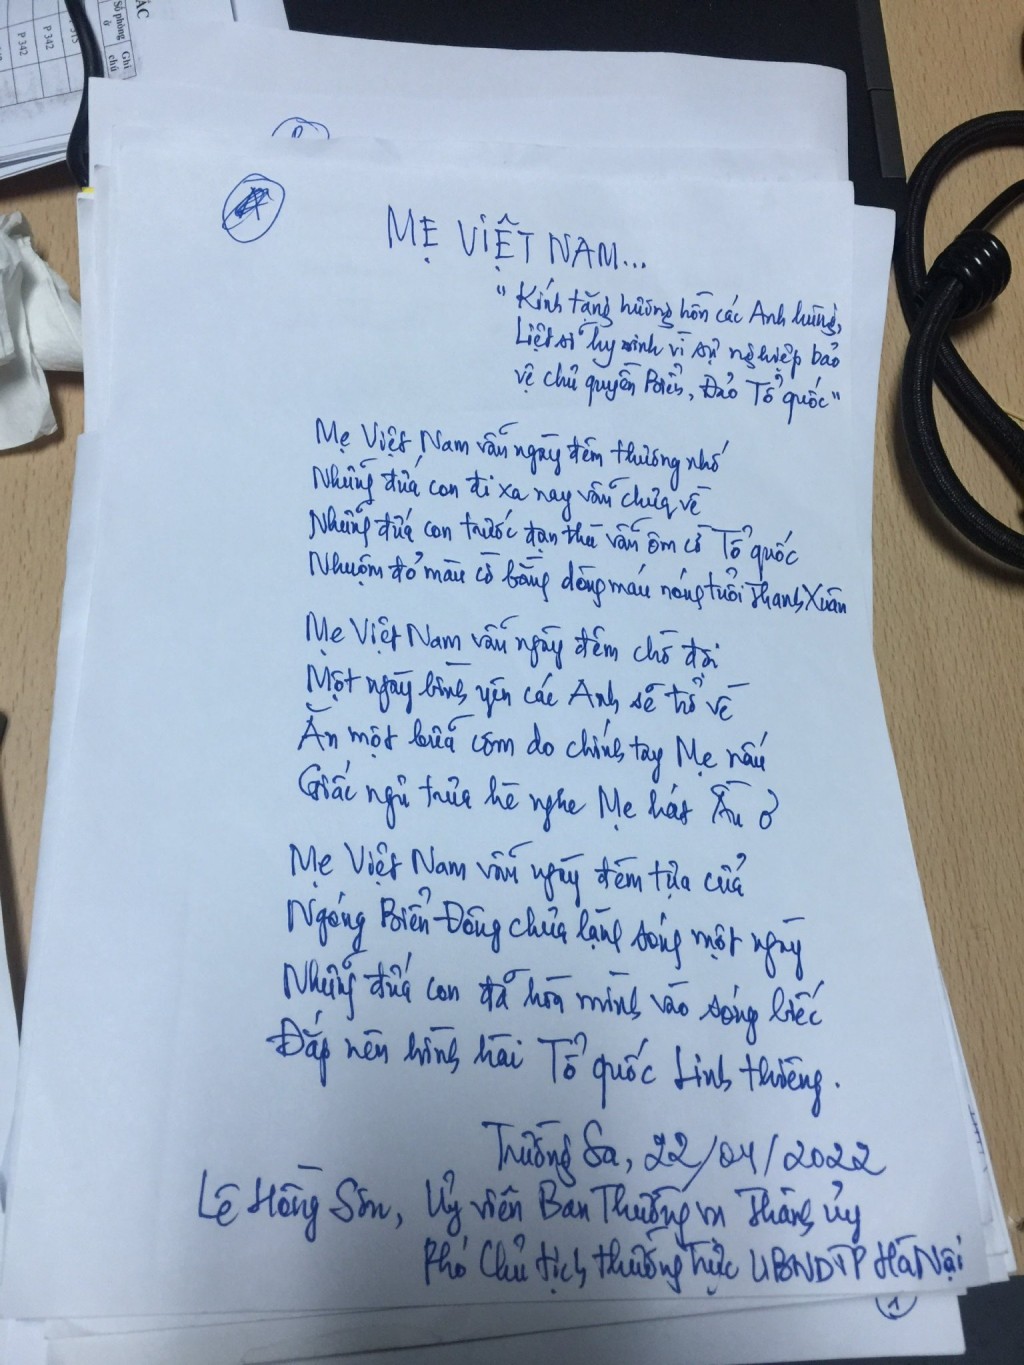 ÁC
Số phòng ở
Ghi chú
P 342
P 342
MẸ VIỆT NAM...
"Kính tặng hương hồn các Anh hùng,
Liệt sĩ hy sinh vì sự nghiệp bảo
vệ chủ quyền Biển, Đảo Tổ quốc"
Mẹ Việt Nam vẫn ngày đêm thương nhớ
Những đứa con đi xa nay vẫn chưa về
Những đứa con trước đạn thù vẫn ôm cờ Tổ quốc
Nhuộm đỏ màu cờ bằng dòng máu nóng tuổi Thanh Xuân
Mẹ Việt Nam vẫn ngày đêm chờ đợi
Một ngày bình yên các Anh sẽ trở về
Ăn một bữa cơm do chính tay Mẹ nấu
Giấc ngủ trưa hè nghe Mẹ hát Ầu ơ
Mẹ Việt Nam vẫn ngày đêm tựa cửa
Ngóng Biển Đông chưa lặng sóng một ngày
Những đứa con đã hòa mình vào sóng biếc
Đắp nên hình hài Tổ quốc Linh thiêng.
Trường Sa, 22/04/2022
Lê Hồng Sơn, Uỷ viên Ban Thường vụ Thành ủy
Phó Chủ tịch thường trực UBNDTP Hà Nội
1